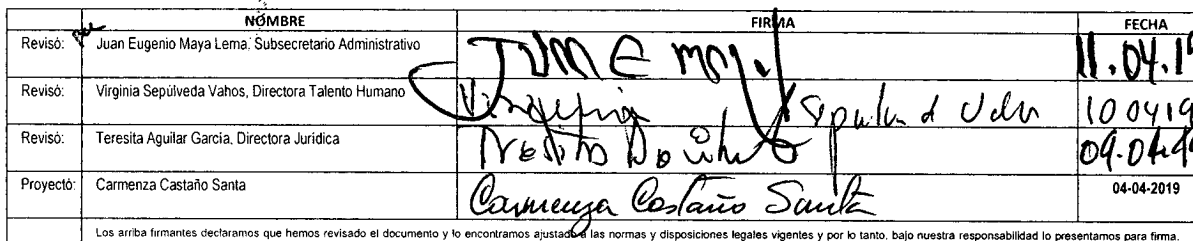 NOMBRE FIRMA FECHA
Revisó: Juan Eugenio Maya Lema, Subsecretario Administrativo 11.04.1
Revisó: Virginia Sepúlveda Vahos, Directora Talento Humano 100419
Revisó: Teresita Aguilar García, Directora Jurídica
Proyectó: Carmenza Castaño Santa Carmenza Castaño Santa 04-04-2019
Los arriba firmantes declaramos que hemos revisado el documento y lo encontramos ajustado a las normas y disposiciones legales vigentes y por lo tanto, bajo nuestra responsabilidad lo presentamos para firma.